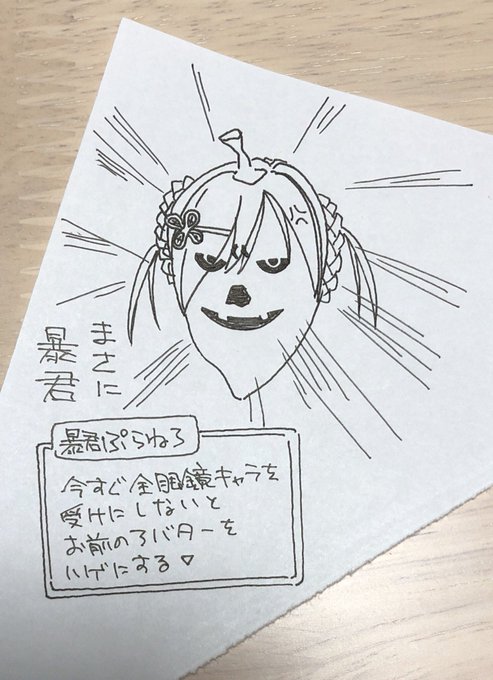 まさに
暴君
暴君ぷらねろ
今すぐ全眼鏡キャラを
受けにしないと
お前のアバターを
ハゲにする♡